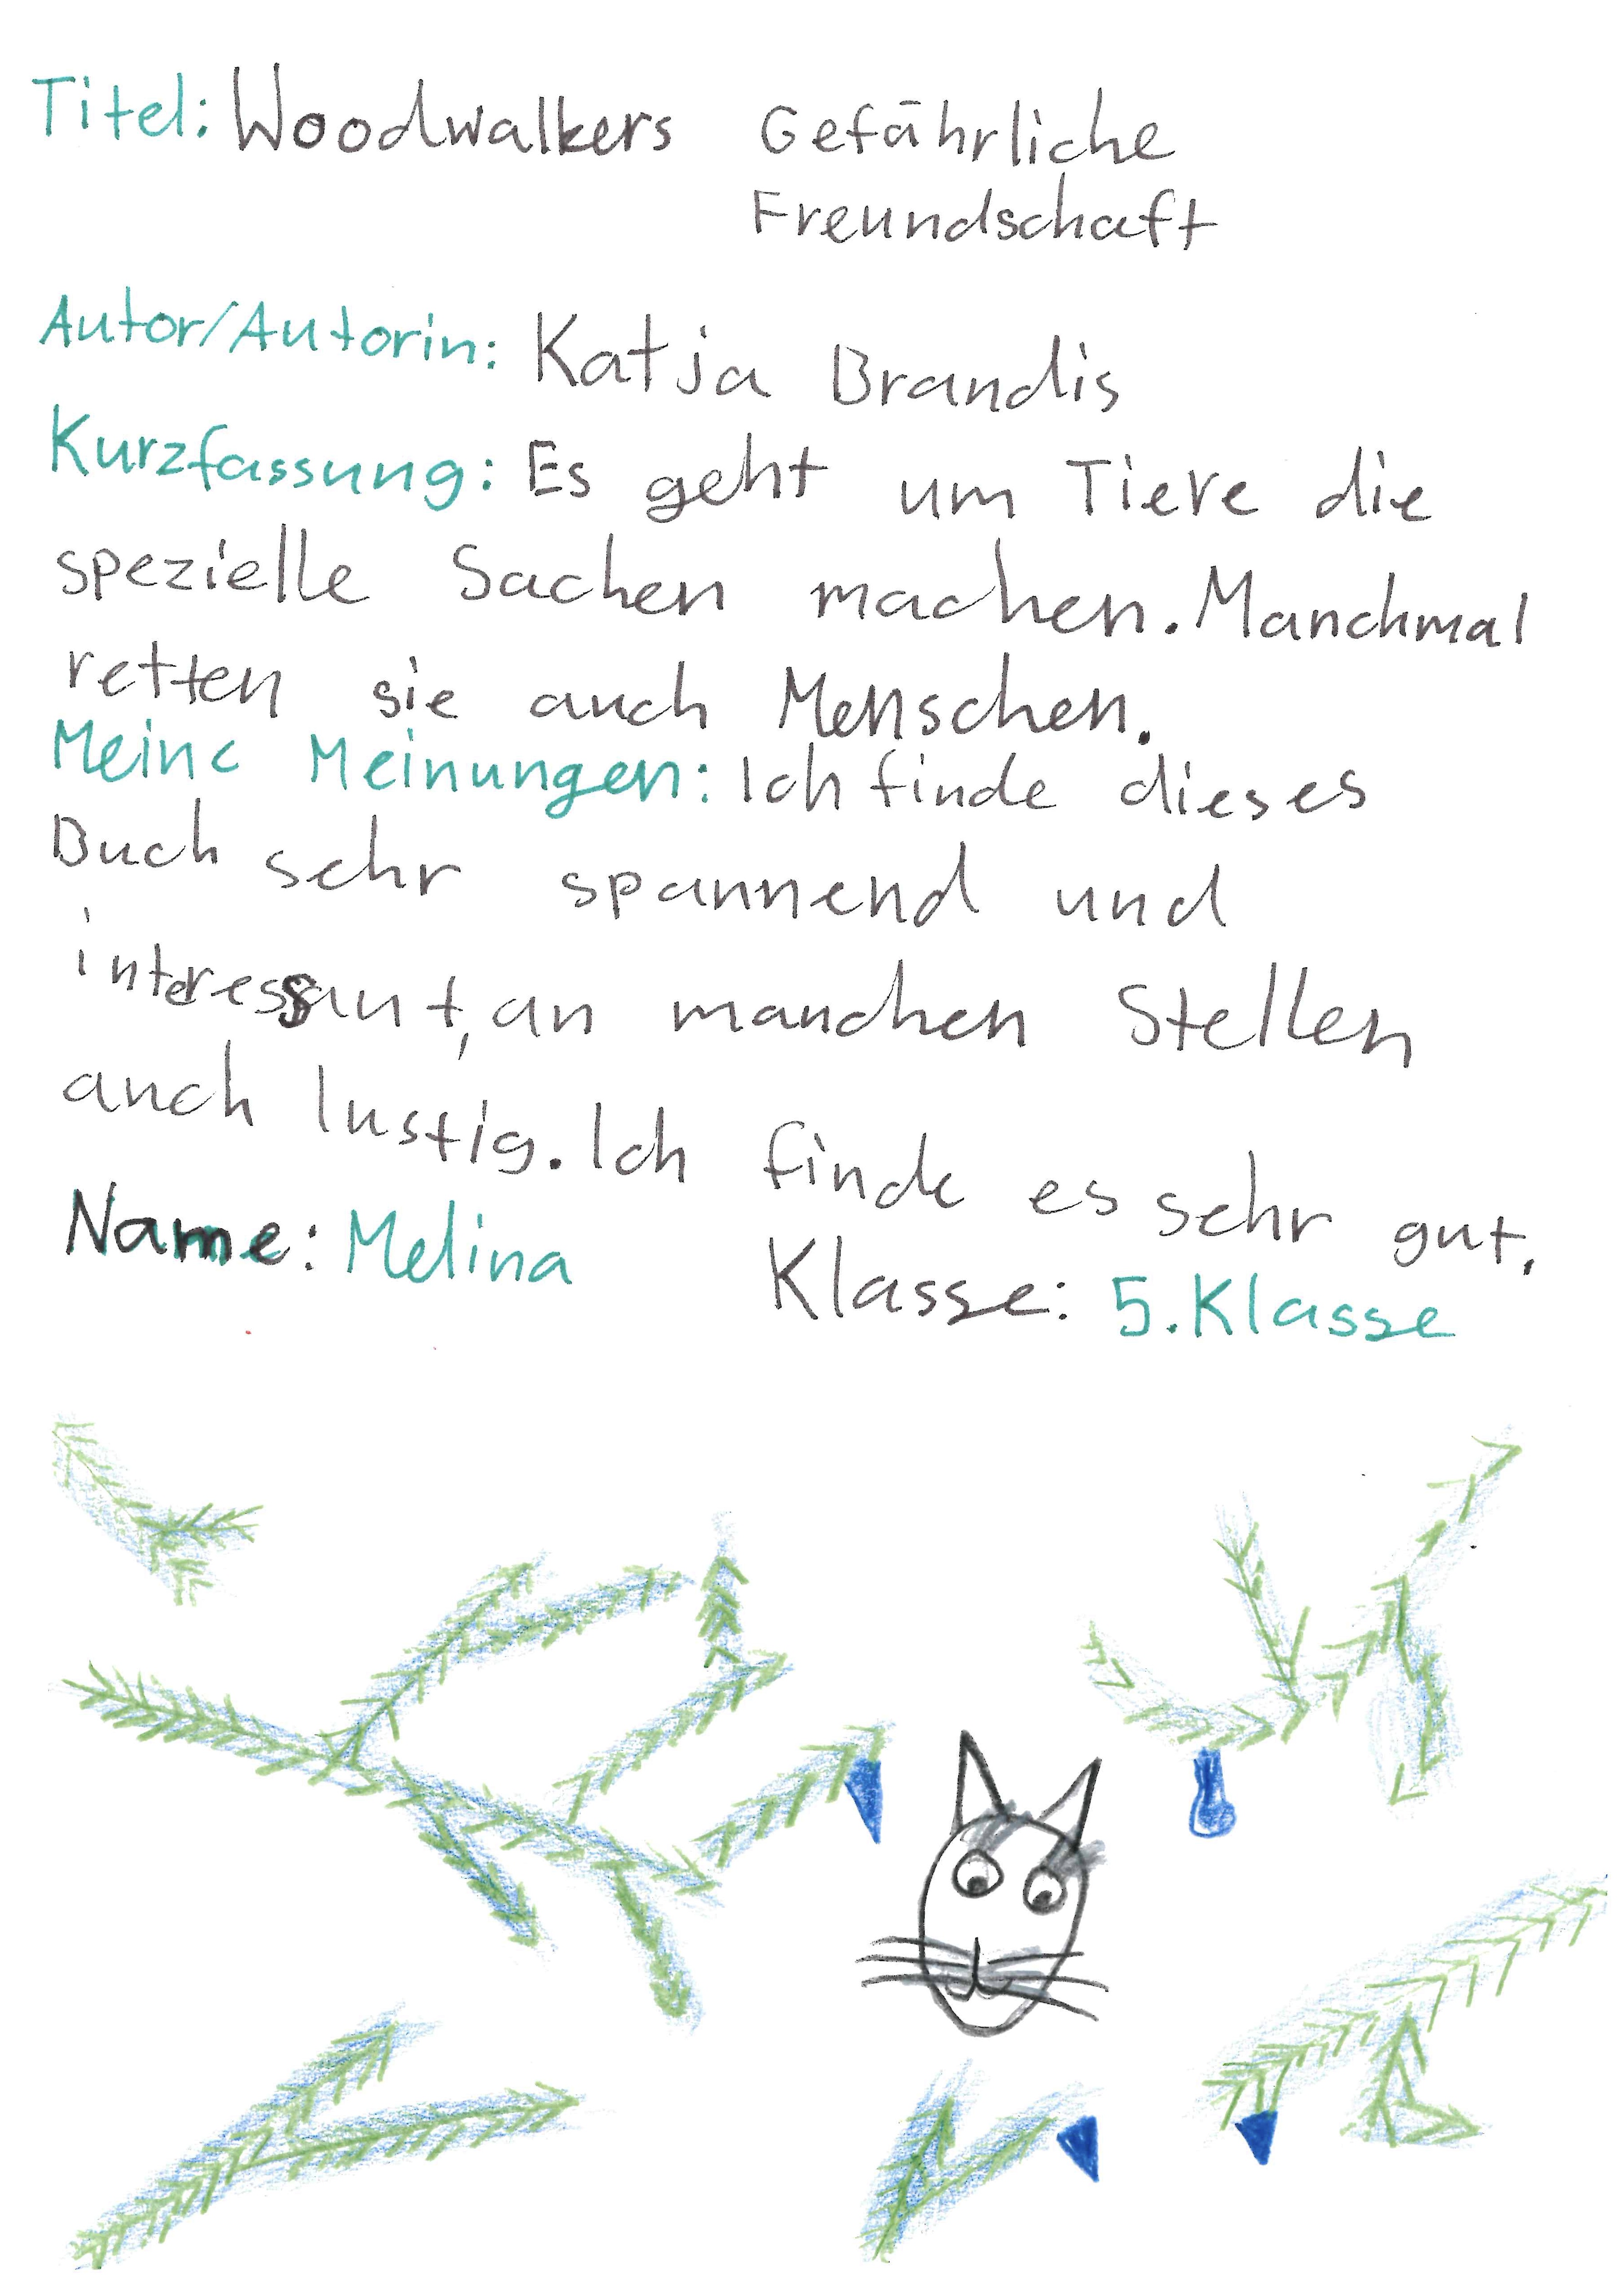 Titel: Woodwalkers Gefährliche
Freundschaft
Autor/Autorin: Katja Brandis
Kurzfassung: Es geht um Tiere die
spezielle Sachen machen. Manchmal
retten sie auch Menschen.
Meine Meinungen: Ich finde dieses
Buch sehr spannend und
interessant, an manchen Stellen
auch lustig. Ich finde es sehr gut.
Name: Melina Klasse: 5. Klasse